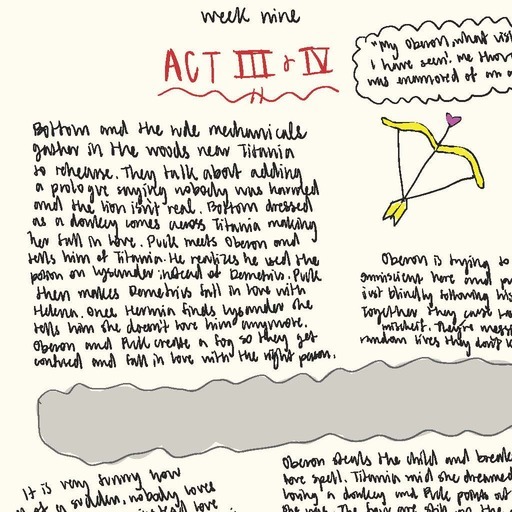 week nine
ACT III & IV
"My Oberon, what
I have seen! me
was enamored of an
Bottom and the rude mechanicals
gather in the woods near Titania
to rehearse. They talk about adding
a prologue saying nobody was harmed
and the lion isn't real. Bottom dressed
as a donkey comes across Titania making
her fall in love. Puck meets Oberon and
tells him of Titania. He realizes he used the
potion on lysander instead of Demetrius. Puck
then makes Demetrius fall in love with
Helena. Once Hermia finds lysander she
tells him she doesn't love him anymore.
Oberon and Puck create a fog so they get
confused and fall in love with the right person.
Oberon is trying to
omniscient here and
just blindly following his
Together they
mischief. They're
random lives they don't
It is very funny how
of a sudden, nobody loves
love
Oberon steals the child and
love spell. Titania said she dreamed
loving a donkey and Puck points out
the